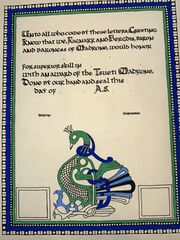 Unto all who come by these letters, Greeting
Know that we, Ragnarr and Berchis, baron
and baroness of Madrone, would honor
For superior skill in
with an award of the Tsueti Madrone.
Done by our hand and seal this
day of A.S.